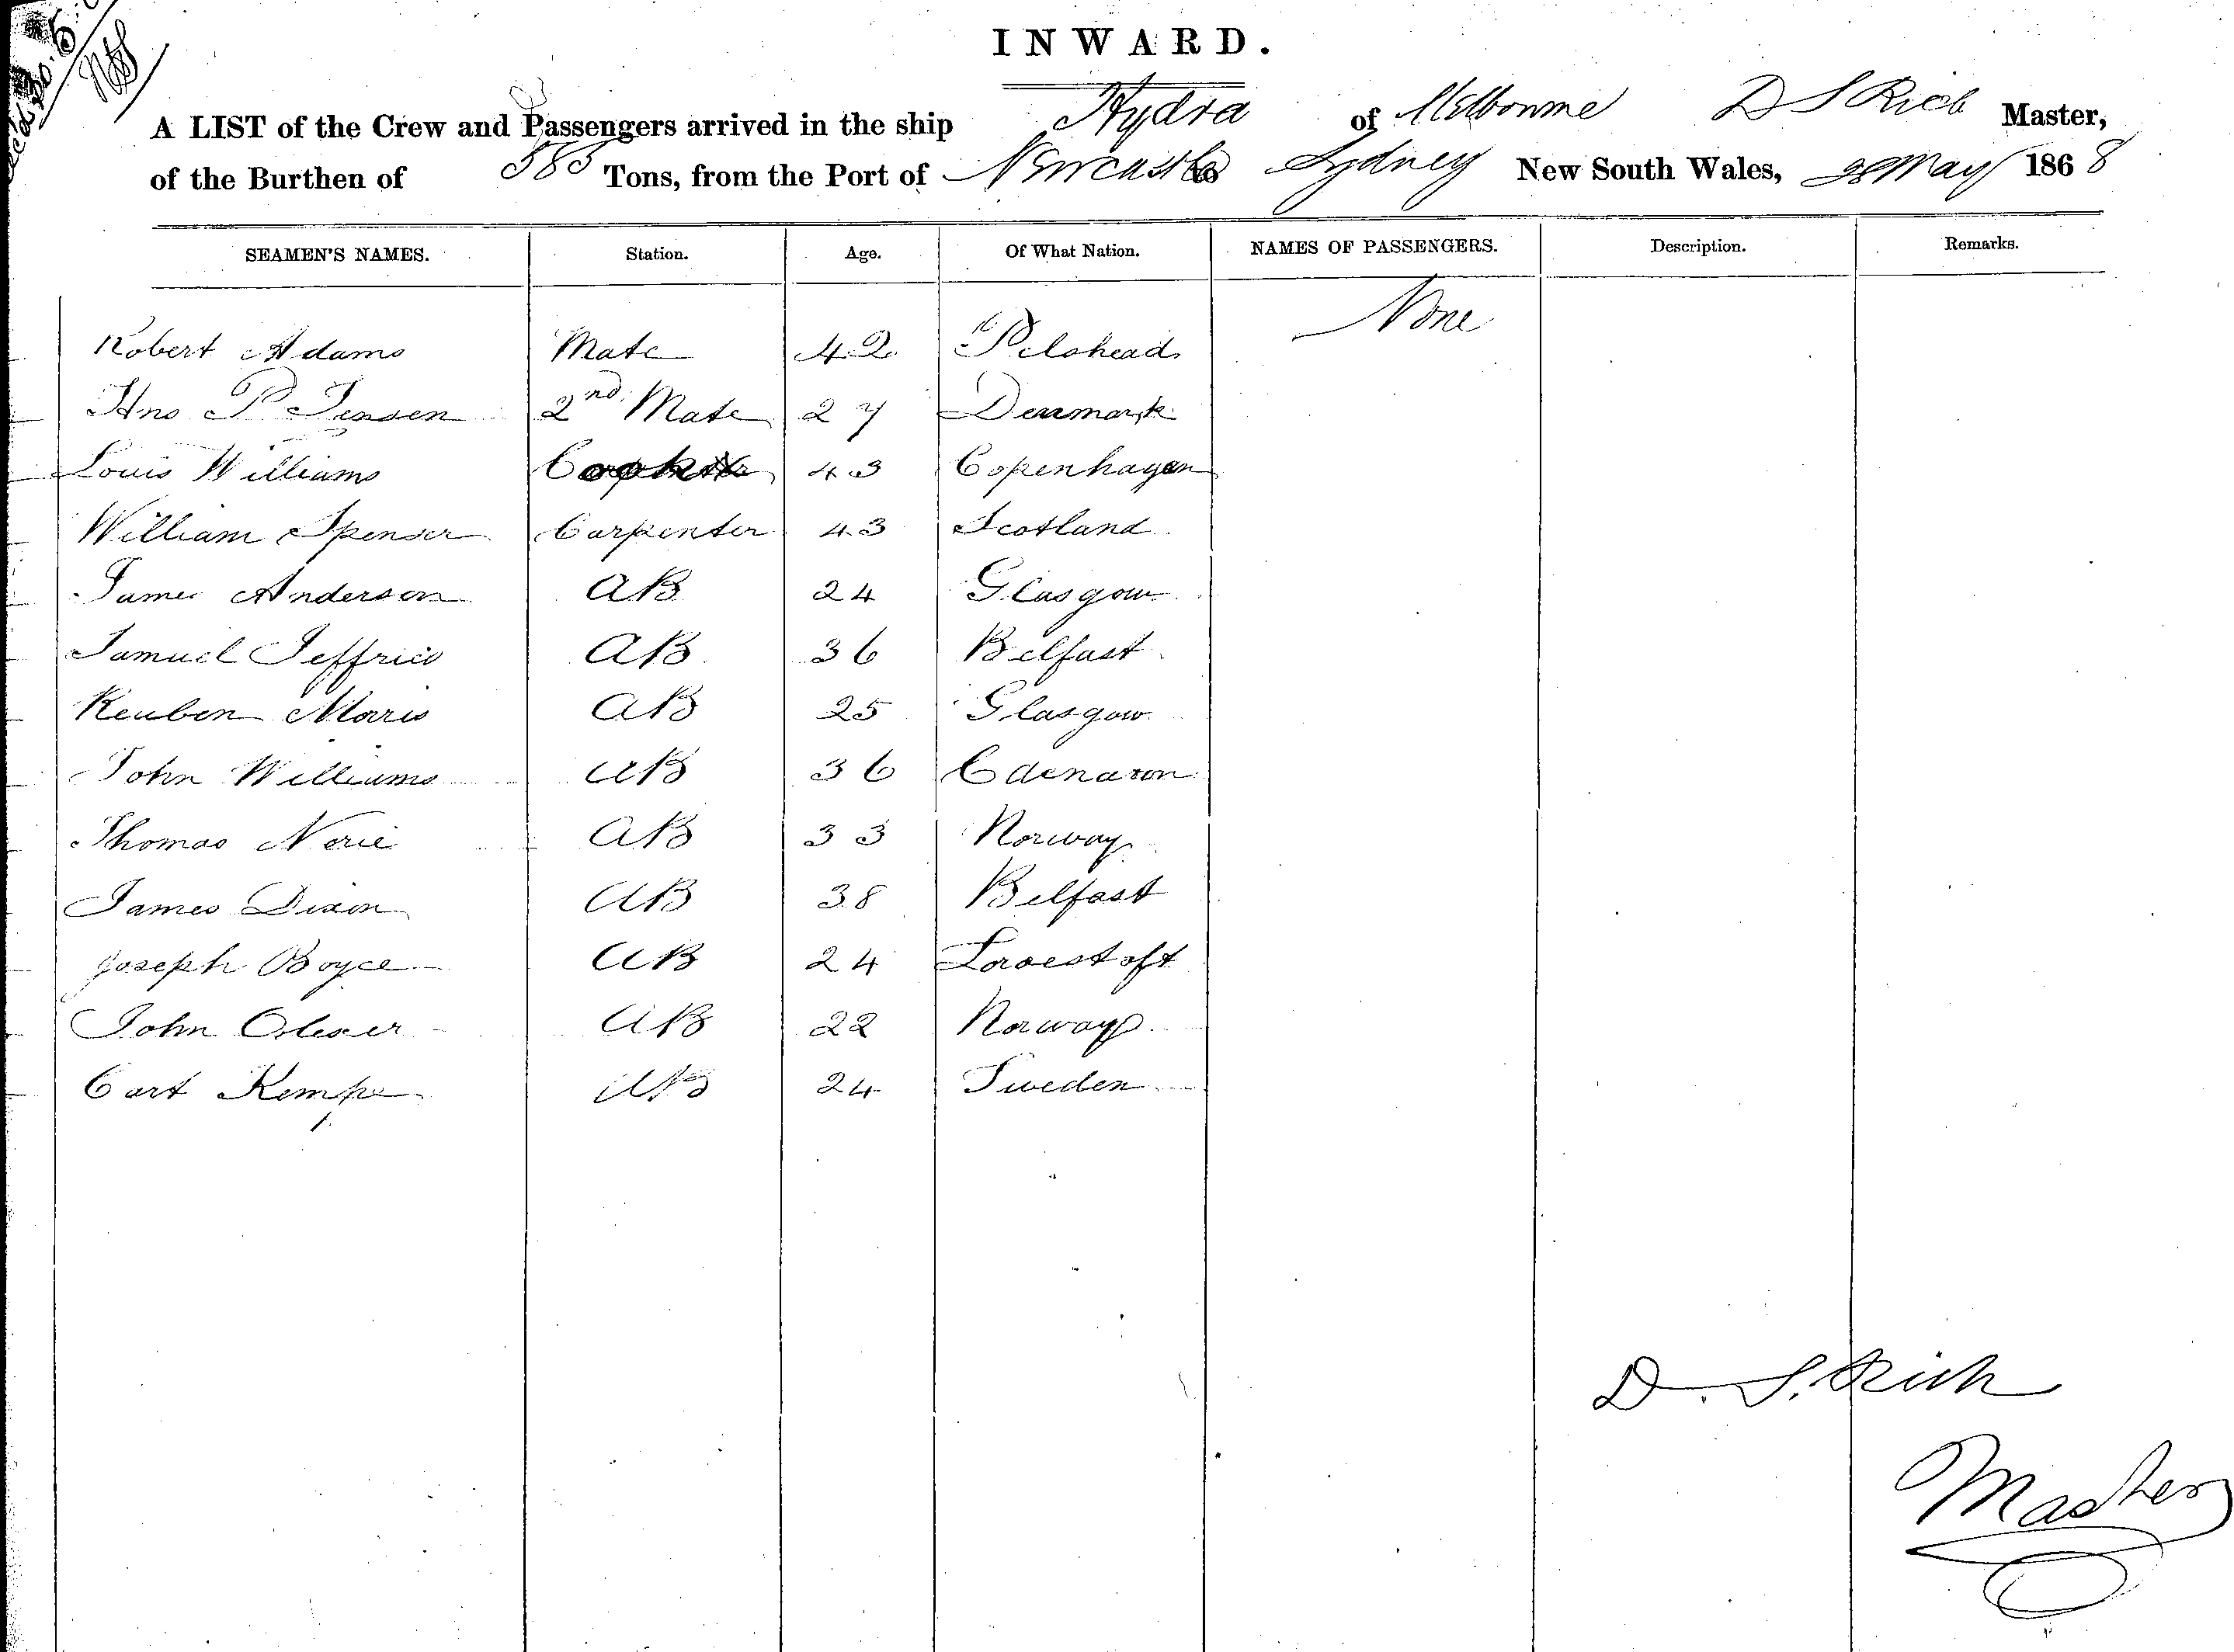 INWARD.
A LIST of the Crew and Passengers arrived in the ship Hydra of Melbourne D S Rich Master,
of the Burthen of 383 Tons, from the Port of Newcastle Sydney New South Wales, 28 May 1868
SEAMEN'S NAMES. Station. Age. Of What Nation. NAMES OF PASSENGERS. Description. Remarks.
None
Robert Adams Mate 42
Hns P Jensen 2nd Mate 27 Denmark
Louis Williams Cook 43 Copenhagen
William Spenser Carpenter 43 Scotland
James Anderson AB 24 Glasgow
Samuel Jeffries AB 36 Belfast
Reuben Moris AB 25 Glasgow
John Williams AB 36
Thomas Norie AB 33 Norway
James Dixon AB 38 Belfast
Joseph Boyce AB 24 Lowestoft
John AB 22 Norway
Cart Kempe AB 24 Sweden
D. S. Rich
Master